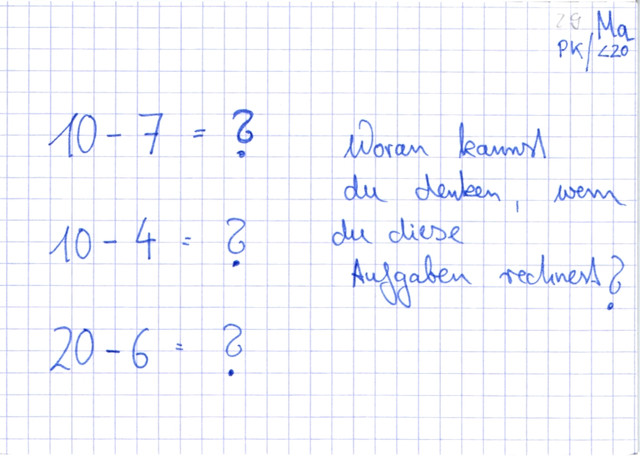 29 Ma
PK/<20
10 - 7 = ?
10 - 4 = ?
20 - 6 = ?
Woran kannst
du denken, wenn
du diese
Aufgaben rechnest?